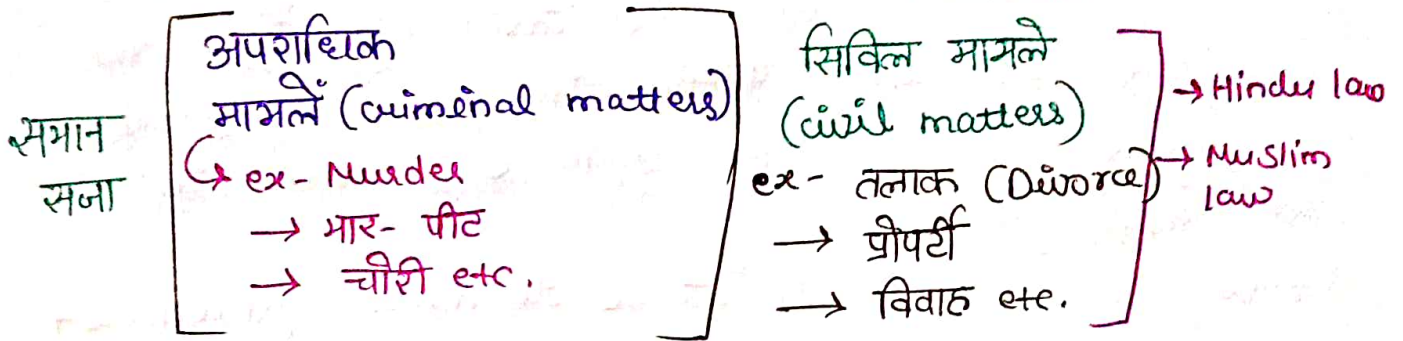 समान
सजा
अपराधिक
मामलें (criminal matters)
ex- Murder
→ मार- पीट
→ चोरी etc.
सिविल मामले
(civil matters)
ex- तलाक (Divorce)
→ प्रोपर्टी
→ विवाह etc.
→ Hindu law
→ Muslim
law